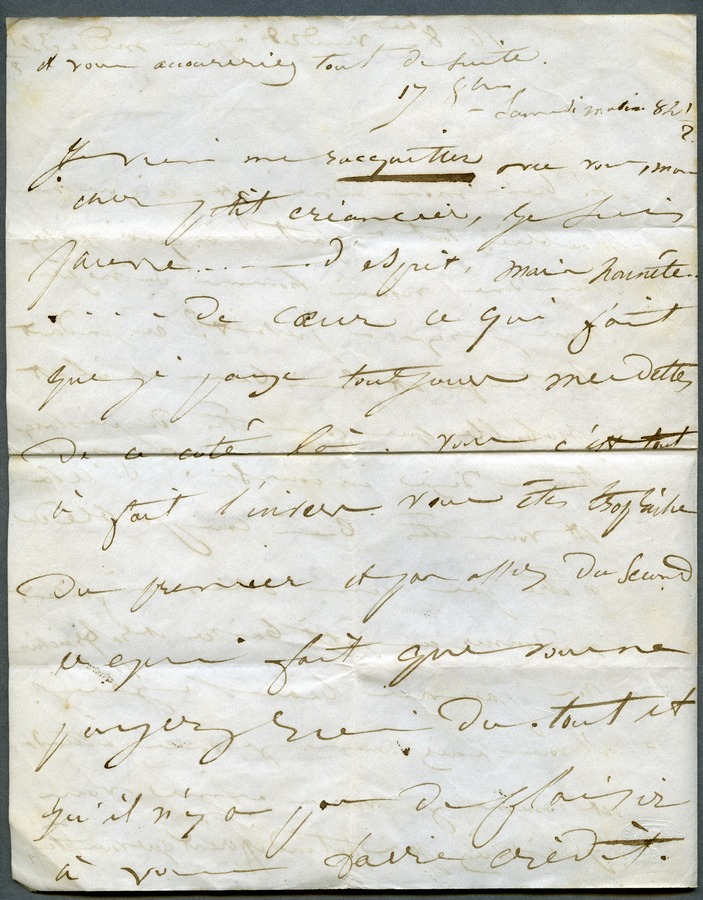 et vous accoureriez tout de suite.
17 8bre
- Samedi matin 8h 1/2
Je viens me racquitter avec vous, mon
cher ptit créancier, je suis
pauvre..----d'esprit, mais honnête..
.... de cœur ce qui fait
que je paye toutjours mes dettes
de ce coté là. vous c'est tout
à fait l'invers vous êtes trop riche
du premier et pas assez du second
ce qui fait que vous ne
payez rien du tout et
qu'il n'y a pas de plaisir
à vous faire crédit.